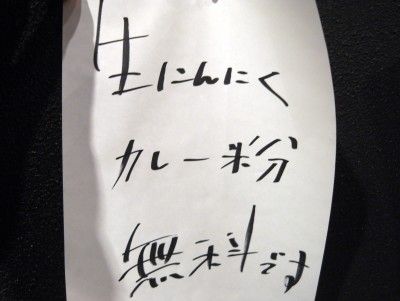 生にんにく
カレー粉
無料です